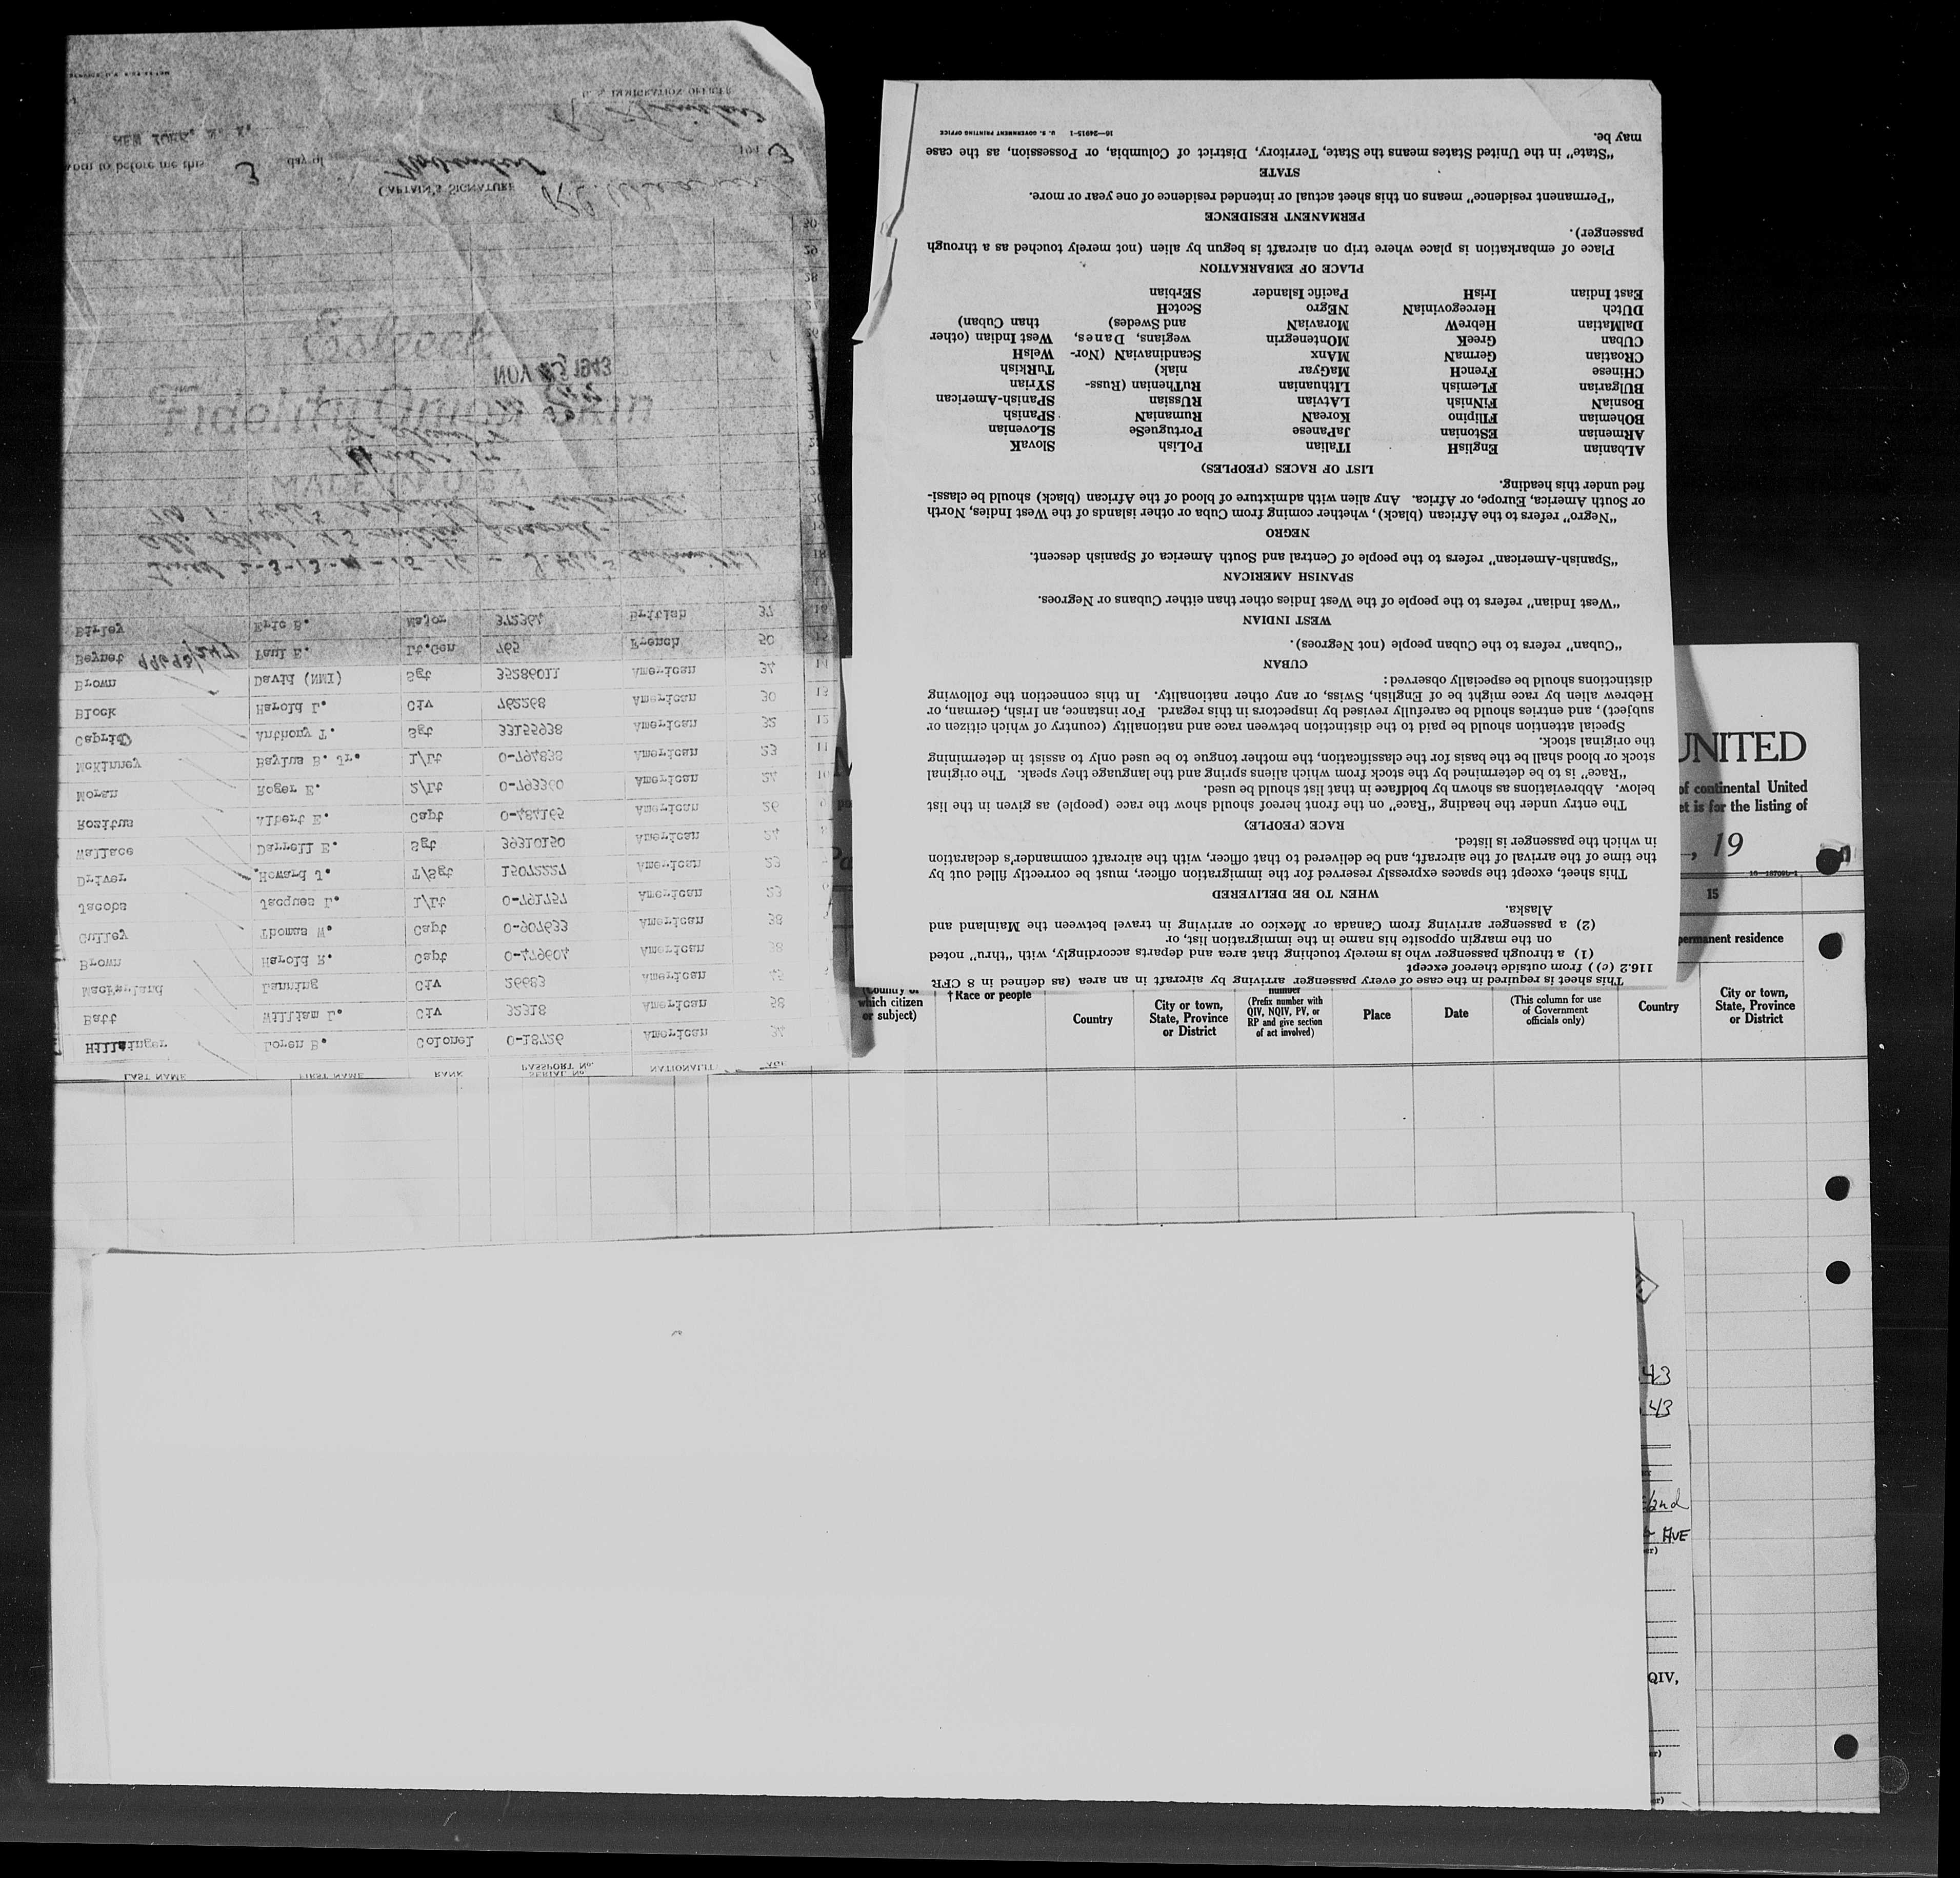 LAST NAME FIRST NAME RANK SERIAL No. PASSPORT No. NATIONALIT AGE
Hillsinger Loren B. Colonel 0-18726 American 34
Batt William L. Civ 32318 American 58
Macfarland Lanning Civ 26683 American 45
Brown Harold R. Capt 0-479604 American 38
Culley Thomas W. Capt 0-907633 American 38
Jacobs Jacques L. 1/Lt 0-791757 American 23
Driver Howard J. T/Sgt 15072227 American 23
Wallace Darrell E. Sgt 39310150 American 24
Rozitus Albert E. Capt 0-484165 American 26
Moran Roger E. 2/Lt 0-793360 American 24
McKinney Baylus B. Jr. 1/Lt 0-794838 American 23
Caprio Anthony T. Sgt 33155938 American 32
Block Harold L. Civ 762268 American 30
Brown David (NMI) Sgt 35286011 American 34
Beynet 99693/247 Paul E. Lt.Gen 765 French 50
Birley Eric B. Major 372364 British 37
18
19
20
MADE IN U S A
Fidelity Onion Skin
NOV 1943
28
29
30
CAPTAIN'S SIGNATURE
orn to before me this 3 day of November 194 3
NEW YORK, N. Y.
U. S. IMMIGRATION OFFICER
This sheet is required in the case of every passenger arriving by aircraft in an area (as defined in 8 CFR
116.2 (c) ) from outside thereof except
(1) a through passenger who is merely touching that area and departs accordingly, with "thru" noted
on the margin opposite his name in the immigration list, or
(2) a passenger arriving from Canada or Mexico or arriving in travel between the Mainland and
Alaska.
WHEN TO BE DELIVERED
This sheet, except the spaces expressly reserved for the immigration officer, must be correctly filled out by
the time of the arrival of the aircraft, and be delivered to that officer, with the aircraft commander's declaration
in which the passenger is listed.
RACE (PEOPLE)
The entry under the heading "Race" on the front hereof should show the race (people) as given in the list
below. Abbreviations as shown by boldface in that list should be used.
"Race" is to be determined by the stock from which aliens spring and the language they speak. The original
stock or blood shall be the basis for the classification, the mother tongue to be used only to assist in determining
the original stock.
Special attention should be paid to the distinction between race and nationality (country of which citizen or
subject), and entries should be carefully revised by inspectors in this regard. For instance, an Irish, German, or
Hebrew alien by race might be of English, Swiss, or any other nationality. In this connection the following
distinctions should be especially observed:
CUBAN
"Cuban" refers to the Cuban people (not Negroes).
WEST INDIAN
"West Indian" refers to the people of the West Indies other than either Cubans or Negroes.
SPANISH AMERICAN
"Spanish-American" refers to the people of Central and South America of Spanish descent.
NEGRO
"Negro" refers to the African (black), whether coming from Cuba or other islands of the West Indies, North
or South America, Europe, or Africa. Any alien with admixture of blood of the African (black) should be classi-
fied under this heading.
LIST OF RACES (PEOPLES)
ALbanian EnglisH ITalian PoLish SlovaK
ARmenian EStonian JaPanese PortugueSe SLovenian
BOhemian FIlipino KoreaN RumaniaN SPanish
BosniaN FiNnish LAtvian RUssian SPanish-American
BUlgarian FLemish LIthuanian RuThenian (Russ- SYrian
CHinese FrencH MaGyar niak) TurKish
CRoatian GermaN MAnx ScandinaviaN (Nor- WelsH
CUban GreeK MOntenegrin wegians, Danes, West Indian (other
DalMatian HebreW MoraviaN and Swedes) than Cuban)
DUtch HercegoviniaN NEgro ScotcH
East Indian IrisH Pacific Islander SErbian
PLACE OF EMBARKATION
Place of embarkation is place where trip on aircraft is begun by alien (not merely touched as a through
passenger).
PERMANENT RESIDENCE
"Permanent residence" means on this sheet actual or intended residence of one year or more.
STATE
"State" in the United States means the State, Territory, District of Columbia, or Possession, as the case
may be.
16—24915-1 U. S. GOVERNMENT PRINTING OFFICE
UNITED
of continental United
et is for the listing of
, 19
15
permanent residence
(Country of
which citizen
or subject)
†Race or people
Country
City or town,
State, Province
or District
number
(Prefix number with
QIV, NQIV, PV, or
RP and give section
of act involved)
Place
Date
(This column for use
of Government
officials only)
Country
City or town,
State, Province
or District
43
43
2nd
AVE
QIV,